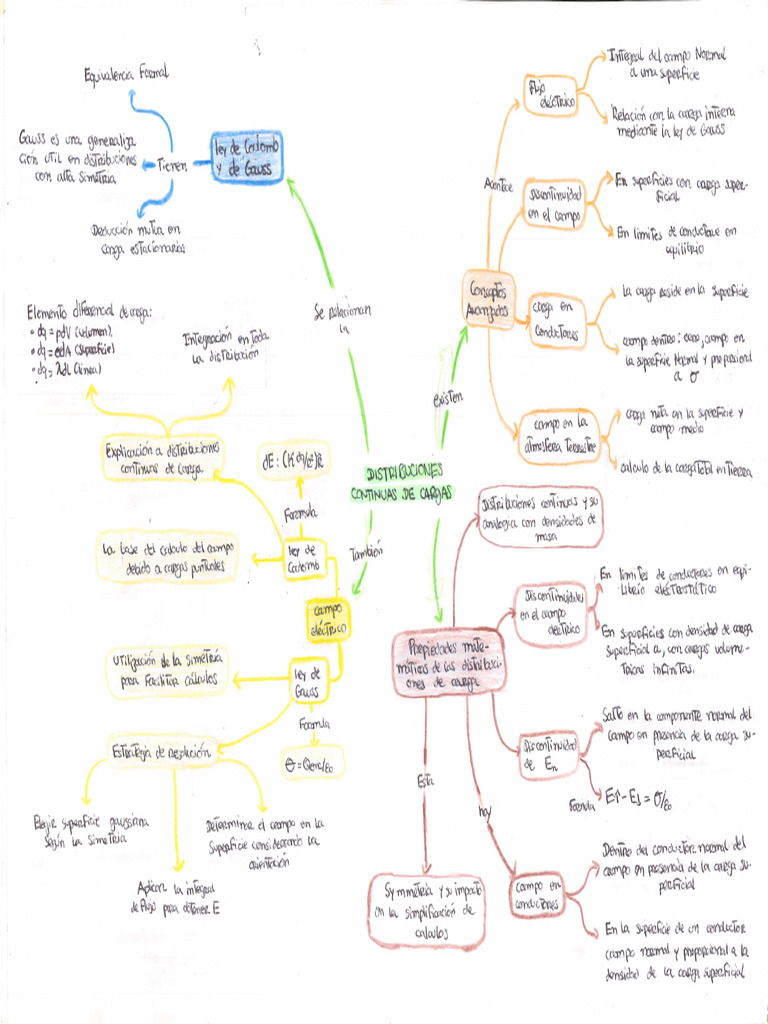 Equivalencia Formal
Gauss es una generaliza
ción util en distribuciones
con alta simetría
Tienen
ley de Coulomb
y de Gauss
Deducción mutua en
carga estacionarias
Se relacionan
la
Flujo
eléctrico
Integral del campo Normal
a una superficie
Relación con la carga interna
mediante la ley de Gauss
Acontece
Discontinuidad
en el campo
En superficies con carga super-
ficial
En limites de conductore en
equilibrio
Conceptos
Avanzados
carga en
conductores
La carga reside en la superficie
campo dentro: cero, campo en
la superficie Normal y proporcional
a σ
campo en la
atmosfera terrestre
carga neta en la superficie y
campo medio
calculo de la carga total en Tierra
existen
Elemento diferencial de carga:
• dq = ρdV (volumen),
• dq = σdA (superficie)
• dq = λdL (linea)
Integración en toda
la distribución
Explicación a distribuciones
continuas de carga
dE: (K dq/r²)r̂
Formula
La base del calculo del campo
debido a cargas puntuales
ley de
Coulomb
DISTRIBUCIONES
CONTINUAS DE CARGAS
También
campo
eléctrico
Utilización de la simetría
para facilitar cálculos
ley de
Gauss
Formula
Estrategia de resolución
Φ = Qenc/ε0
Elejir superficie gaussiana
según la simetría
Aplicar la integral
de flujo para obtener E
Determinar el campo en la
superficie considerando la
orientación
Distribuciones continuas y su
analogia con densidades de
masa
Propiedades mate-
máticas de las distribuci-
ones de carga
Discontinuidades
en el campo
eléctrico
En limites de conductores en equi-
librio electrostático
En superficies con densidad de carga
superficial a, con cargas volume-
tricas infinitas.
Discontinuidad
de En
Salto en la componente normal del
campo en presencia de la carga su-
perficial
Formula
E↑ - E↓ = σ/ε0
Esta
hay
Symmetria y su impacto
en la simplificación de
calculos
campo en
conductores
Dentro del conductor normal del
campo en presencia de la carga su-
perficial
En la superficie de un conductor
campo normal y proporcional a la
densidad de la carga superficial